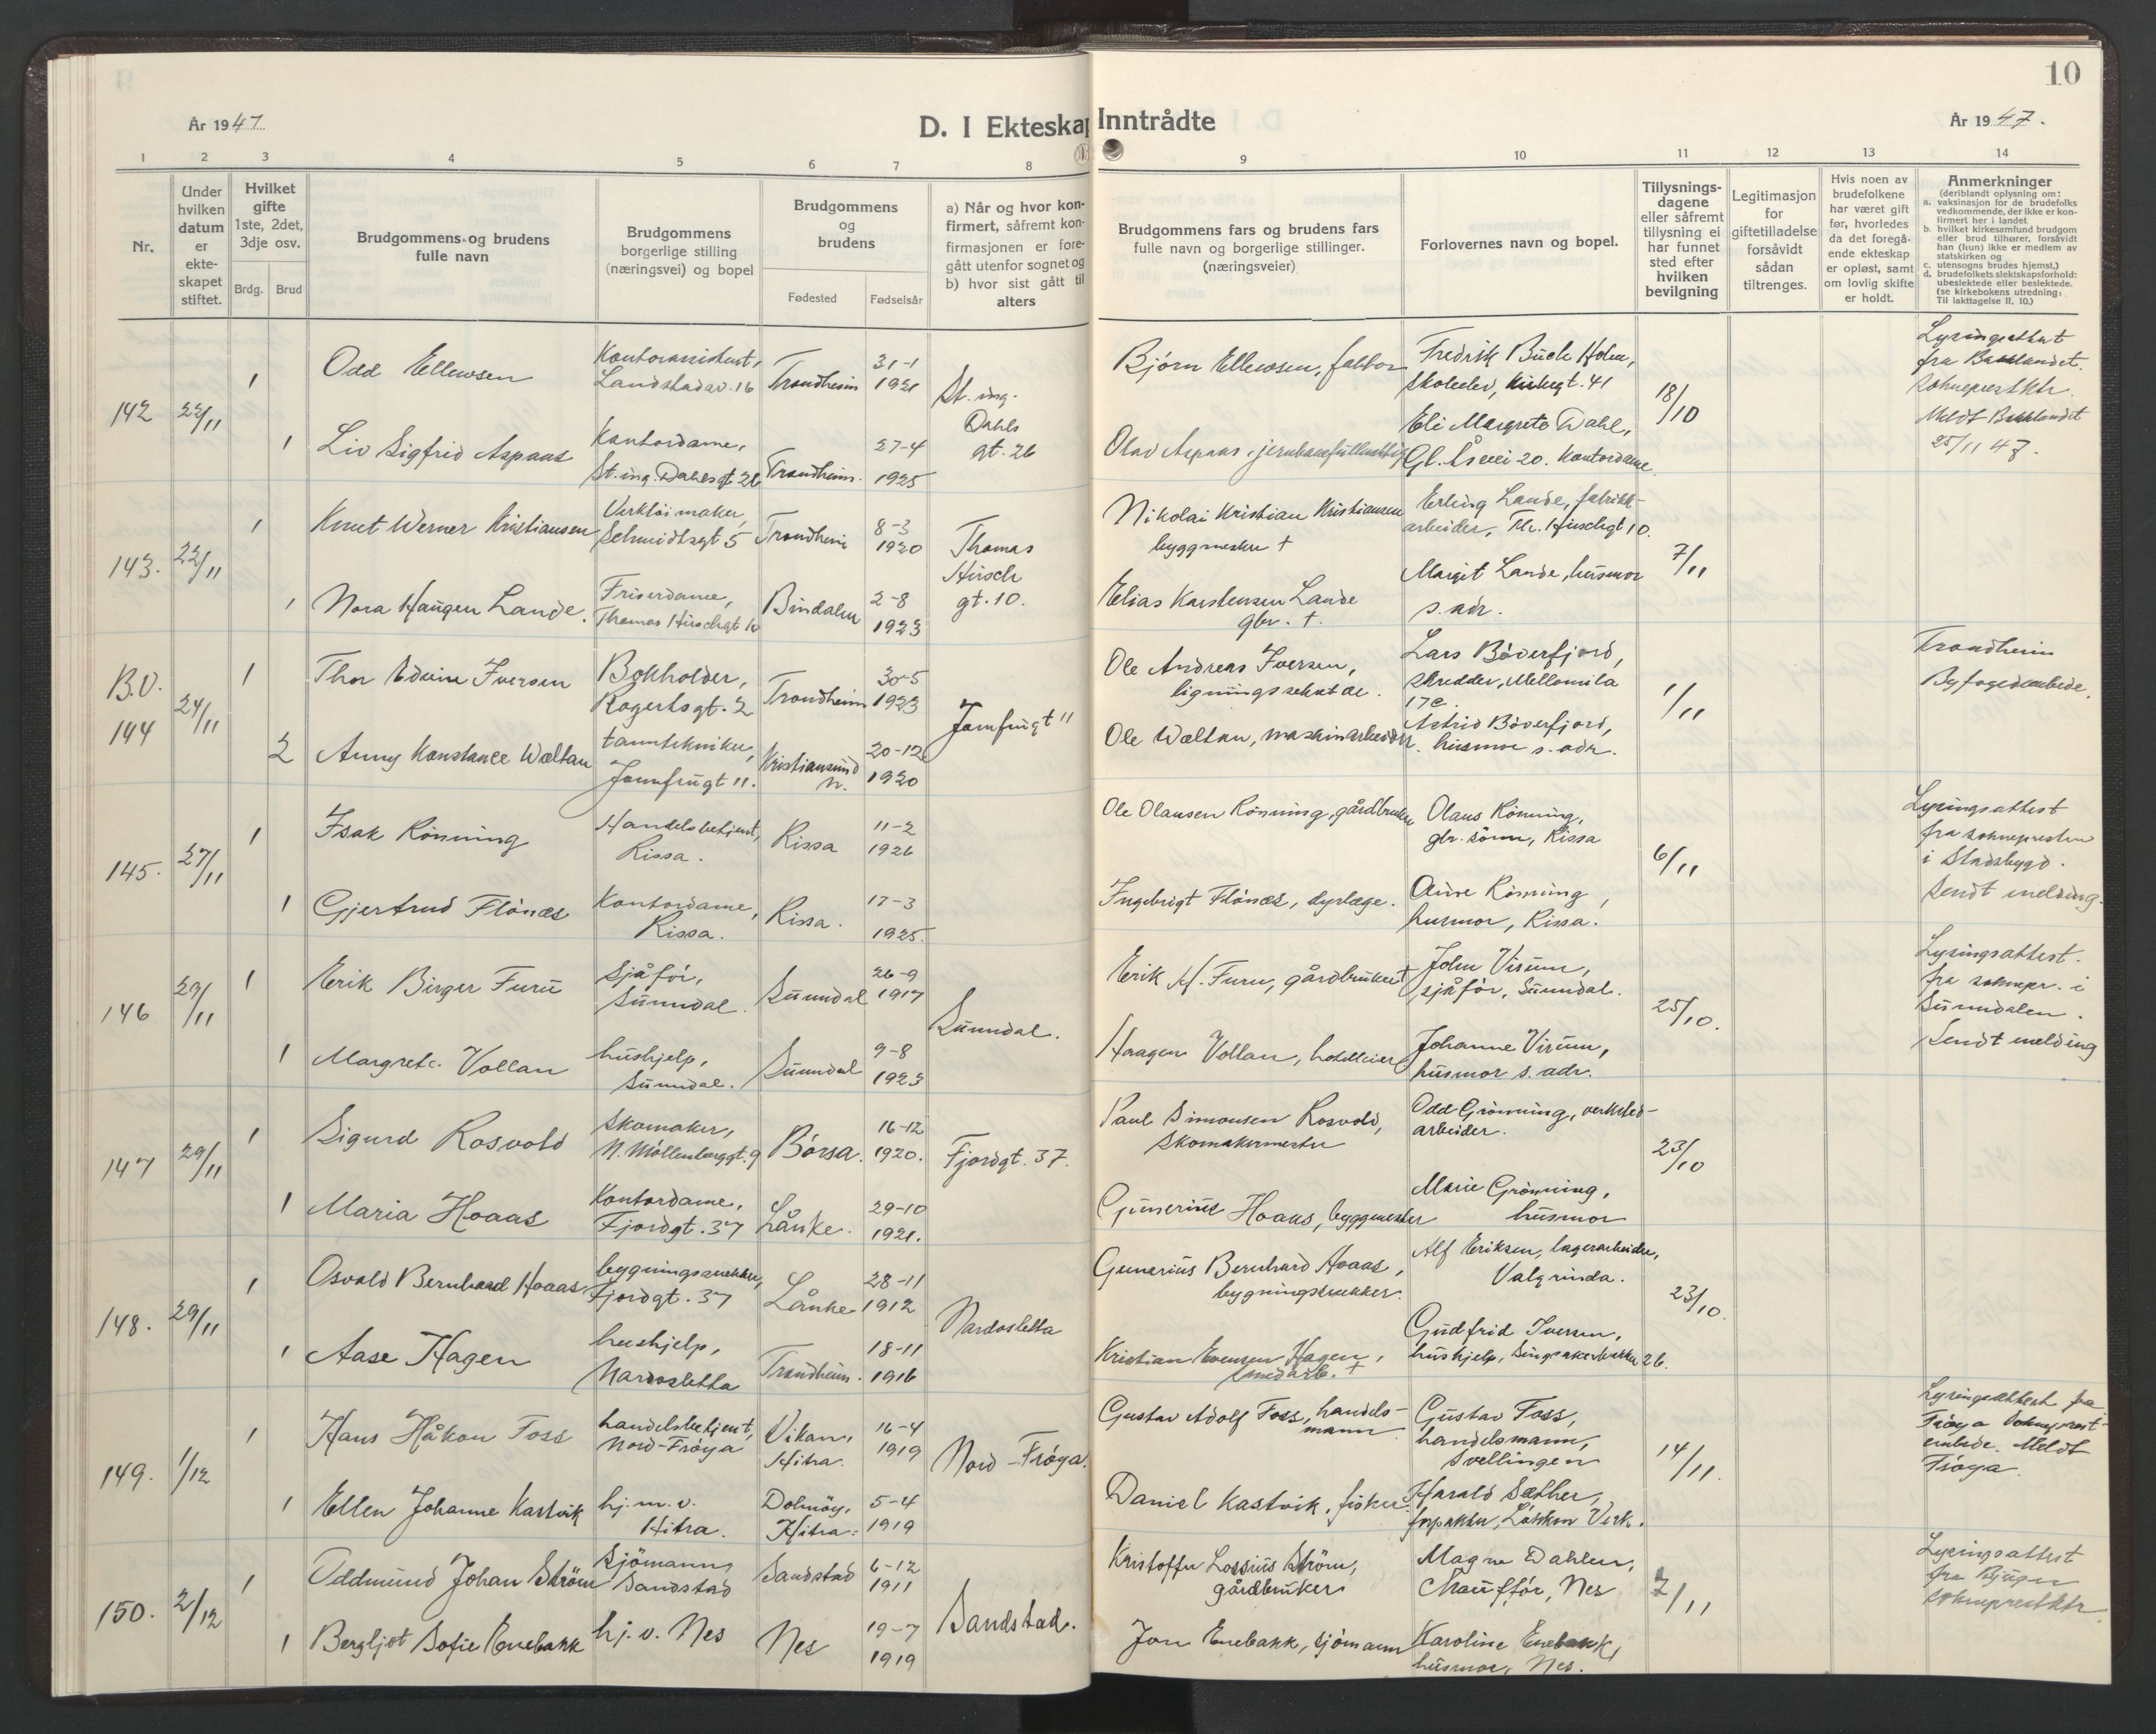 10
År 1947
D. I Ekteskap Inntrådte
År 1947.
1 2 3 4 5 6 7 8 9 10 11 12 13 14
Nr.
Under hvilken datum er ekteskapet stiftet.
Hvilket gifte 1ste, 2det, 3dje osv.
Brdg. Brud
Brudgommens og brudens fulle navn
Brudgommens borgerlige stilling (næringsvei) og bopel
Brudgommens og brudens
Fødested Fødselsår
a) Når og hvor konfirmert, såfremt konfirmasjonen er foregått utenfor sognet og
b) hvor sist gått til alters
Brudgommens fars og brudens fars fulle navn og borgerlige stillinger. (næringsveier)
Forlovernes navn og bopel.
Tillysningsdagene eller såfremt tillysning ei har funnet sted efter hvilken bevilgning
Legitimasjon for giftetilladelse forsåvidt sådan tiltrenges.
Hvis noen av brudefolkene har været gift før, hvorledes da det foregående ekteskap er opløst, samt om lovlig skifte er holdt.
Anmerkninger
(deriblandt oplysning om:
a. vaksinasjon for de brudefolks vedkommende, der ikke er konfirmert her i landet
b. hvilket kirkesamfund brudgom eller brud tilhører, forsåvidt han (hun) ikke er medlem av statskirken og
c. utensogns brudes hjemst.)
d. brudefolkets slektskapsforhold: ubeslektede eller beslektede. (se kirkebokens utredning: Til Iakttagelse II. 10.)
142 22/11
1 Odd Ellewsen
Kontorassistent, Landstadsv. 16
Trondheim 31-1 1921
St. ing. Dahls gt. 26
Bjørn Ellewsen, faktor
Fredrik Buch Holm, skoleelev, Kirkegt. 41
18/10
Lysingsattest fra Bakklandet sokneprestktr. Meldt Bakklandet 25/11 47.
1 Liv Sigfrid Aspaas
Kontordame, St. ing. Dahlsgt 26
Trondheim. 27-4 1925
Olav Aspaas, jernbanefullmektig
Eli Margrete Dahl, Gl. Åsvei 20. Kontordame
143. 22/11
1 Knut Werner Kristiansen
Verktöimaker, Schmidtsgt 5
Trondheim 8-3 1920
Thomas Hirsch gt. 10.
Nikolai Kristian Kristiansen byggmester †
Erling Lande, fabrikkarbeider, Th. Hirschgt 10.
7/11
1 Nora Haugen Lande.
Friserdame, Thomas Hirschgt 10
Bindalen 2-8 1923
Elias Karstensen Lande gbr. †.
Margit Lande, husmor s. adr.
B.V. 144 24/11
1 Thor Edvin Iversen
Bokholder, Rogertsgt. 2
Trondheim 30-5 1923
Jomfrugt 11
Ole Andreas Iversen, ligningssekretær.
Lars Böverfjord, skredder, Mellomila 17c.
1/11
Trondheim Byfogedembede.
2 Anny Konstance Wæltan
tanntekniker, Jomfrugt 11.
Kristiansund N. 20-12 1920
Ole Wæltan, maskinarbeider.
Astrid Böverfjord, husmor s. adr.
145. 27/11
1 Isak Rönning
Handelsbetjent, Rissa.
Rissa 11-2 1926
Ole Olausen Rönning, gårdbruker
Olaus Rönning, gbr. sönn, Rissa
6/11
Lysingsattest fra soknepresten i Stadsbygd. Sendt melding.
1 Gjertrud Flönæs
Kontordame, Rissa.
Rissa. 17-3 1925.
Ingebrigt Flönæs, dyrlæge.
Rönning, husmor, Rissa.
146 29/11
1 Erik Birger Furu
Sjåför, Sunndal.
Sunndal 26-9 1917
Sunndal.
Erik M. Furu, gårdbruker †
John Virum, sjåför, Sunndal.
25/10.
Lysingsattest. fra soknepr. i Sunndalen. Sendt melding
1 Margrete Vollan
hushjelp, Sunndal.
Sunndal 9-8 1923
Haagen Vollan, hotelleier
Johanne Virum, husmor s. adr.
147 29/11
1 Sigurd Rosvold
Skomaker, N. Möllenberggt. 9
Börsa. 16-12 1920.
Fjordgt. 37.
Paul Simonsen Rosvold, Skomakermester
Odd Grönning, verkstedarbeider.
23/10
1 Maria Hoaas
Kontordame, Fjordgt. 37
Lånke. 29-10 1921.
Gunerius Hoaas, byggmester
Marie Grönning, husmor
148. 29/11
1 Osvald Bernhard Hoaas
bygningssnekker, Fjordgt. 37
Lånke 28-11 1912
Nardosletta
Gunerius Bernhard Hoaas, bygningssnekker.
Alf Eriksen, lagerarbeider, Valgrinda.
23/10.
1 Aase Hagen
hushjelp, Nardosletta
Trondheim. 18-11 1916
Kristian Evensen Hagen, †
Gudfrid Iversen, hushjelp, Singsakerbakken 26.
149. 1/12
1 Hans Håkon Foss
handelsbetjent, Nord-Fröya
Vikan, Hitra. 16-4 1919
Nord-Fröya.
Gustav Adolf Foss, handelsmann
Gustav Foss, handelsmann, Svellingen
14/11.
Lysingsattest fra Fröya Sokneprestembede. Meldt Fröya.
1 Ellen Johanne Kastvik
hj. m. v. Hitra.
Dolmöy, Hitra. 5-4 1919
Daniel Kastvik, fisker.
Harald Sæther, forpakter, Lökken Verk.
150. 2/12
1 Oddmund Johan Ström
Sjömann, Sandstad
Sandstad 6-12 1911
Sandstad.
Kristoffer Lossius Ström, gårdbruker
Magne Dahlen, Chaufför, Nes
7/11
Lysingsattest fra Bjugn sokneprestktr.
1 Bergljot Sofie Enebakk
hj. v. Nes
Nes 19-7 1919
Jon Enebakk, sjömann
Karoline Enebakk, husmor, Nes.